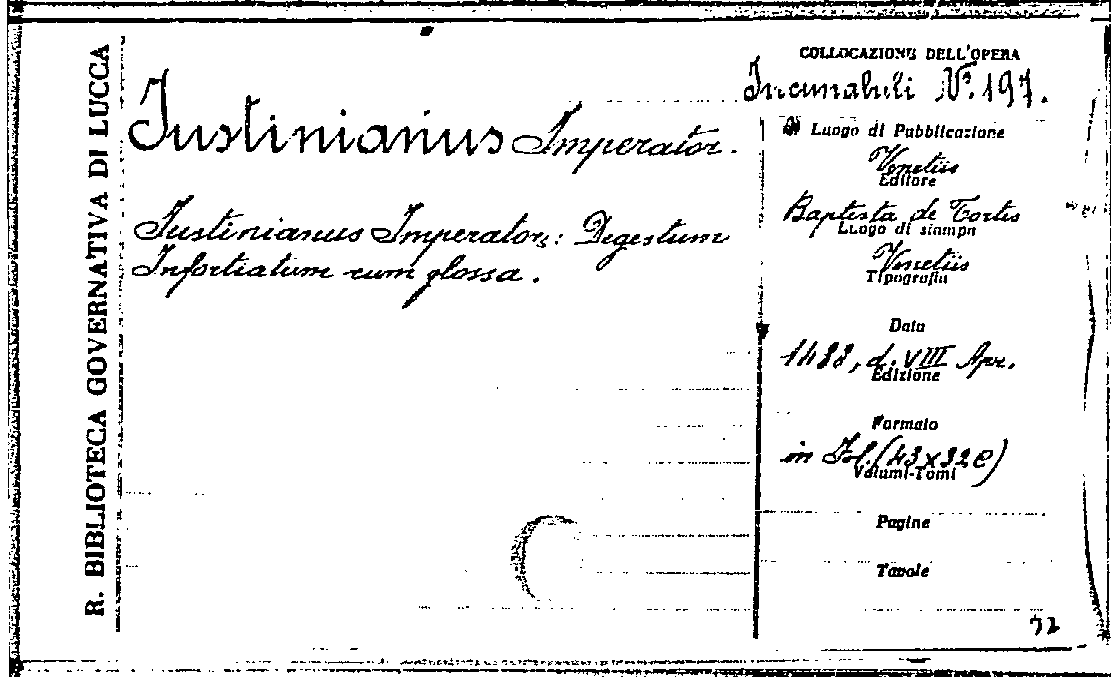 R. BIBLIOTECA GOVERNATIVA DI LUCCA
Justinianus Imperator.
Justinianus Imperator: Digestum
Infortiatum cum glossa.
COLLOCAZIONE DELL'OPERA
Incunabuli Nº. 197.
Luogo di Pubblicazione
Venetiis
Editore
Baptista de Tortis
Luogo di stampa
Venetiis
Tipografia
Data
1488, d. VIII Apr.
Edizione
Formato
in Fol. (43x32c)
Volumi-Tomi
Pagine
Tavole
72